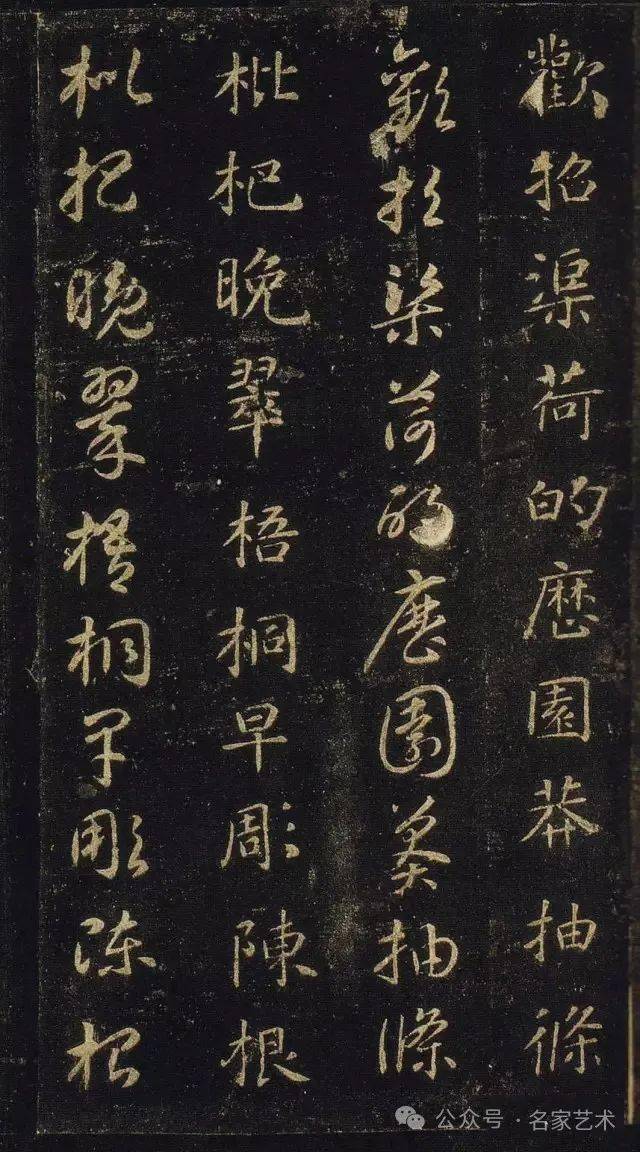 歡招渠荷的歷園莽抽條
歡招渠荷的歷園莽抽條
枇杷晚翠梧桐早彫陳根
枇杷晚翠梧桐早彫陳根
公众号·名家艺术